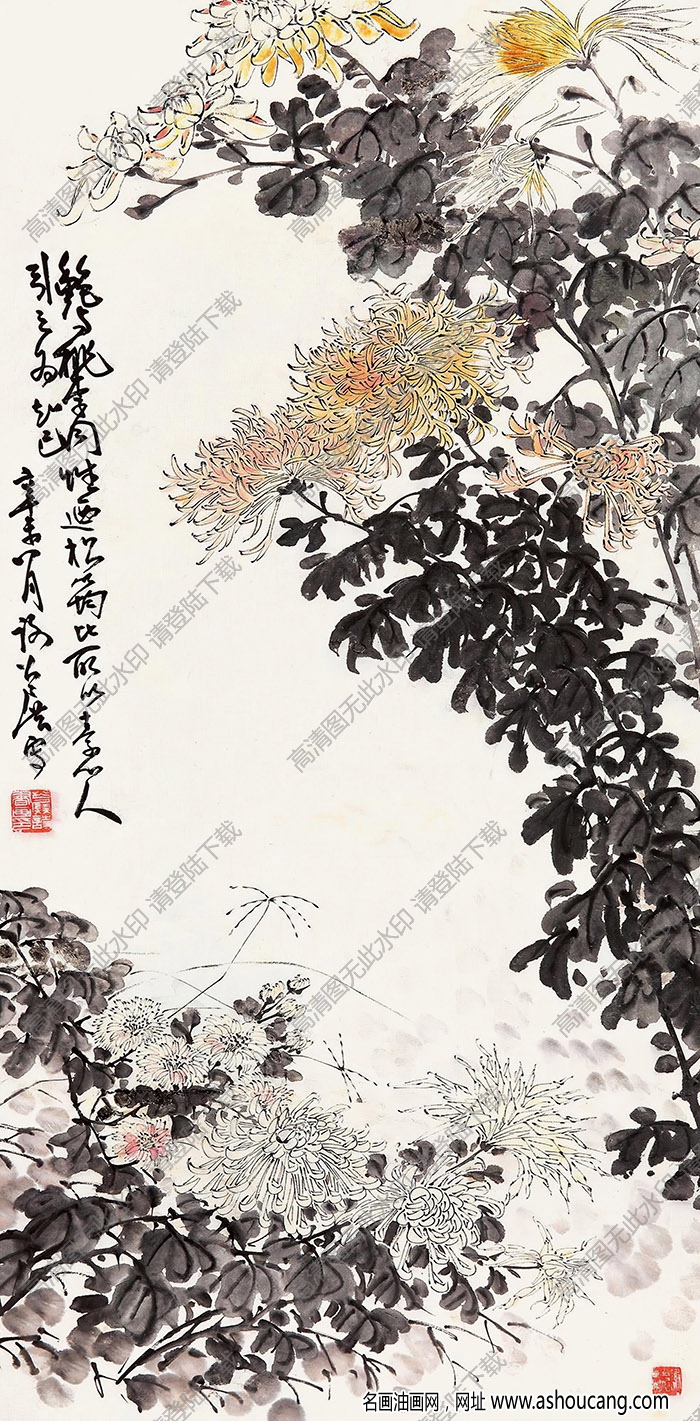 艳与桃李同性迺松筠比所以素心人
引之为知己 辛未八月谢公展写
高清图无此水印 请登陆下载
名画油画网，网址 www.ashoucang.com